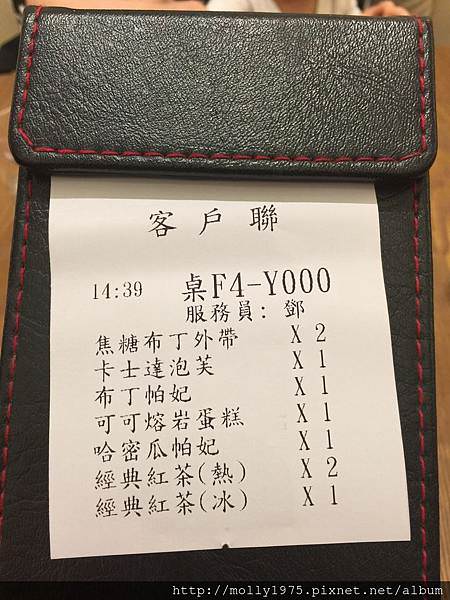 客戶聯
14:39 桌F4-Y000
服務員: 鄧
焦糖布丁外帶 X 2
卡士達泡芙 X 1
布丁帕妃 X 1
可可熔岩蛋糕 X 1
哈密瓜帕妃 X 1
經典紅茶(熱) X 2
經典紅茶(冰) X 1
http://molly1975.pixnet.net/album